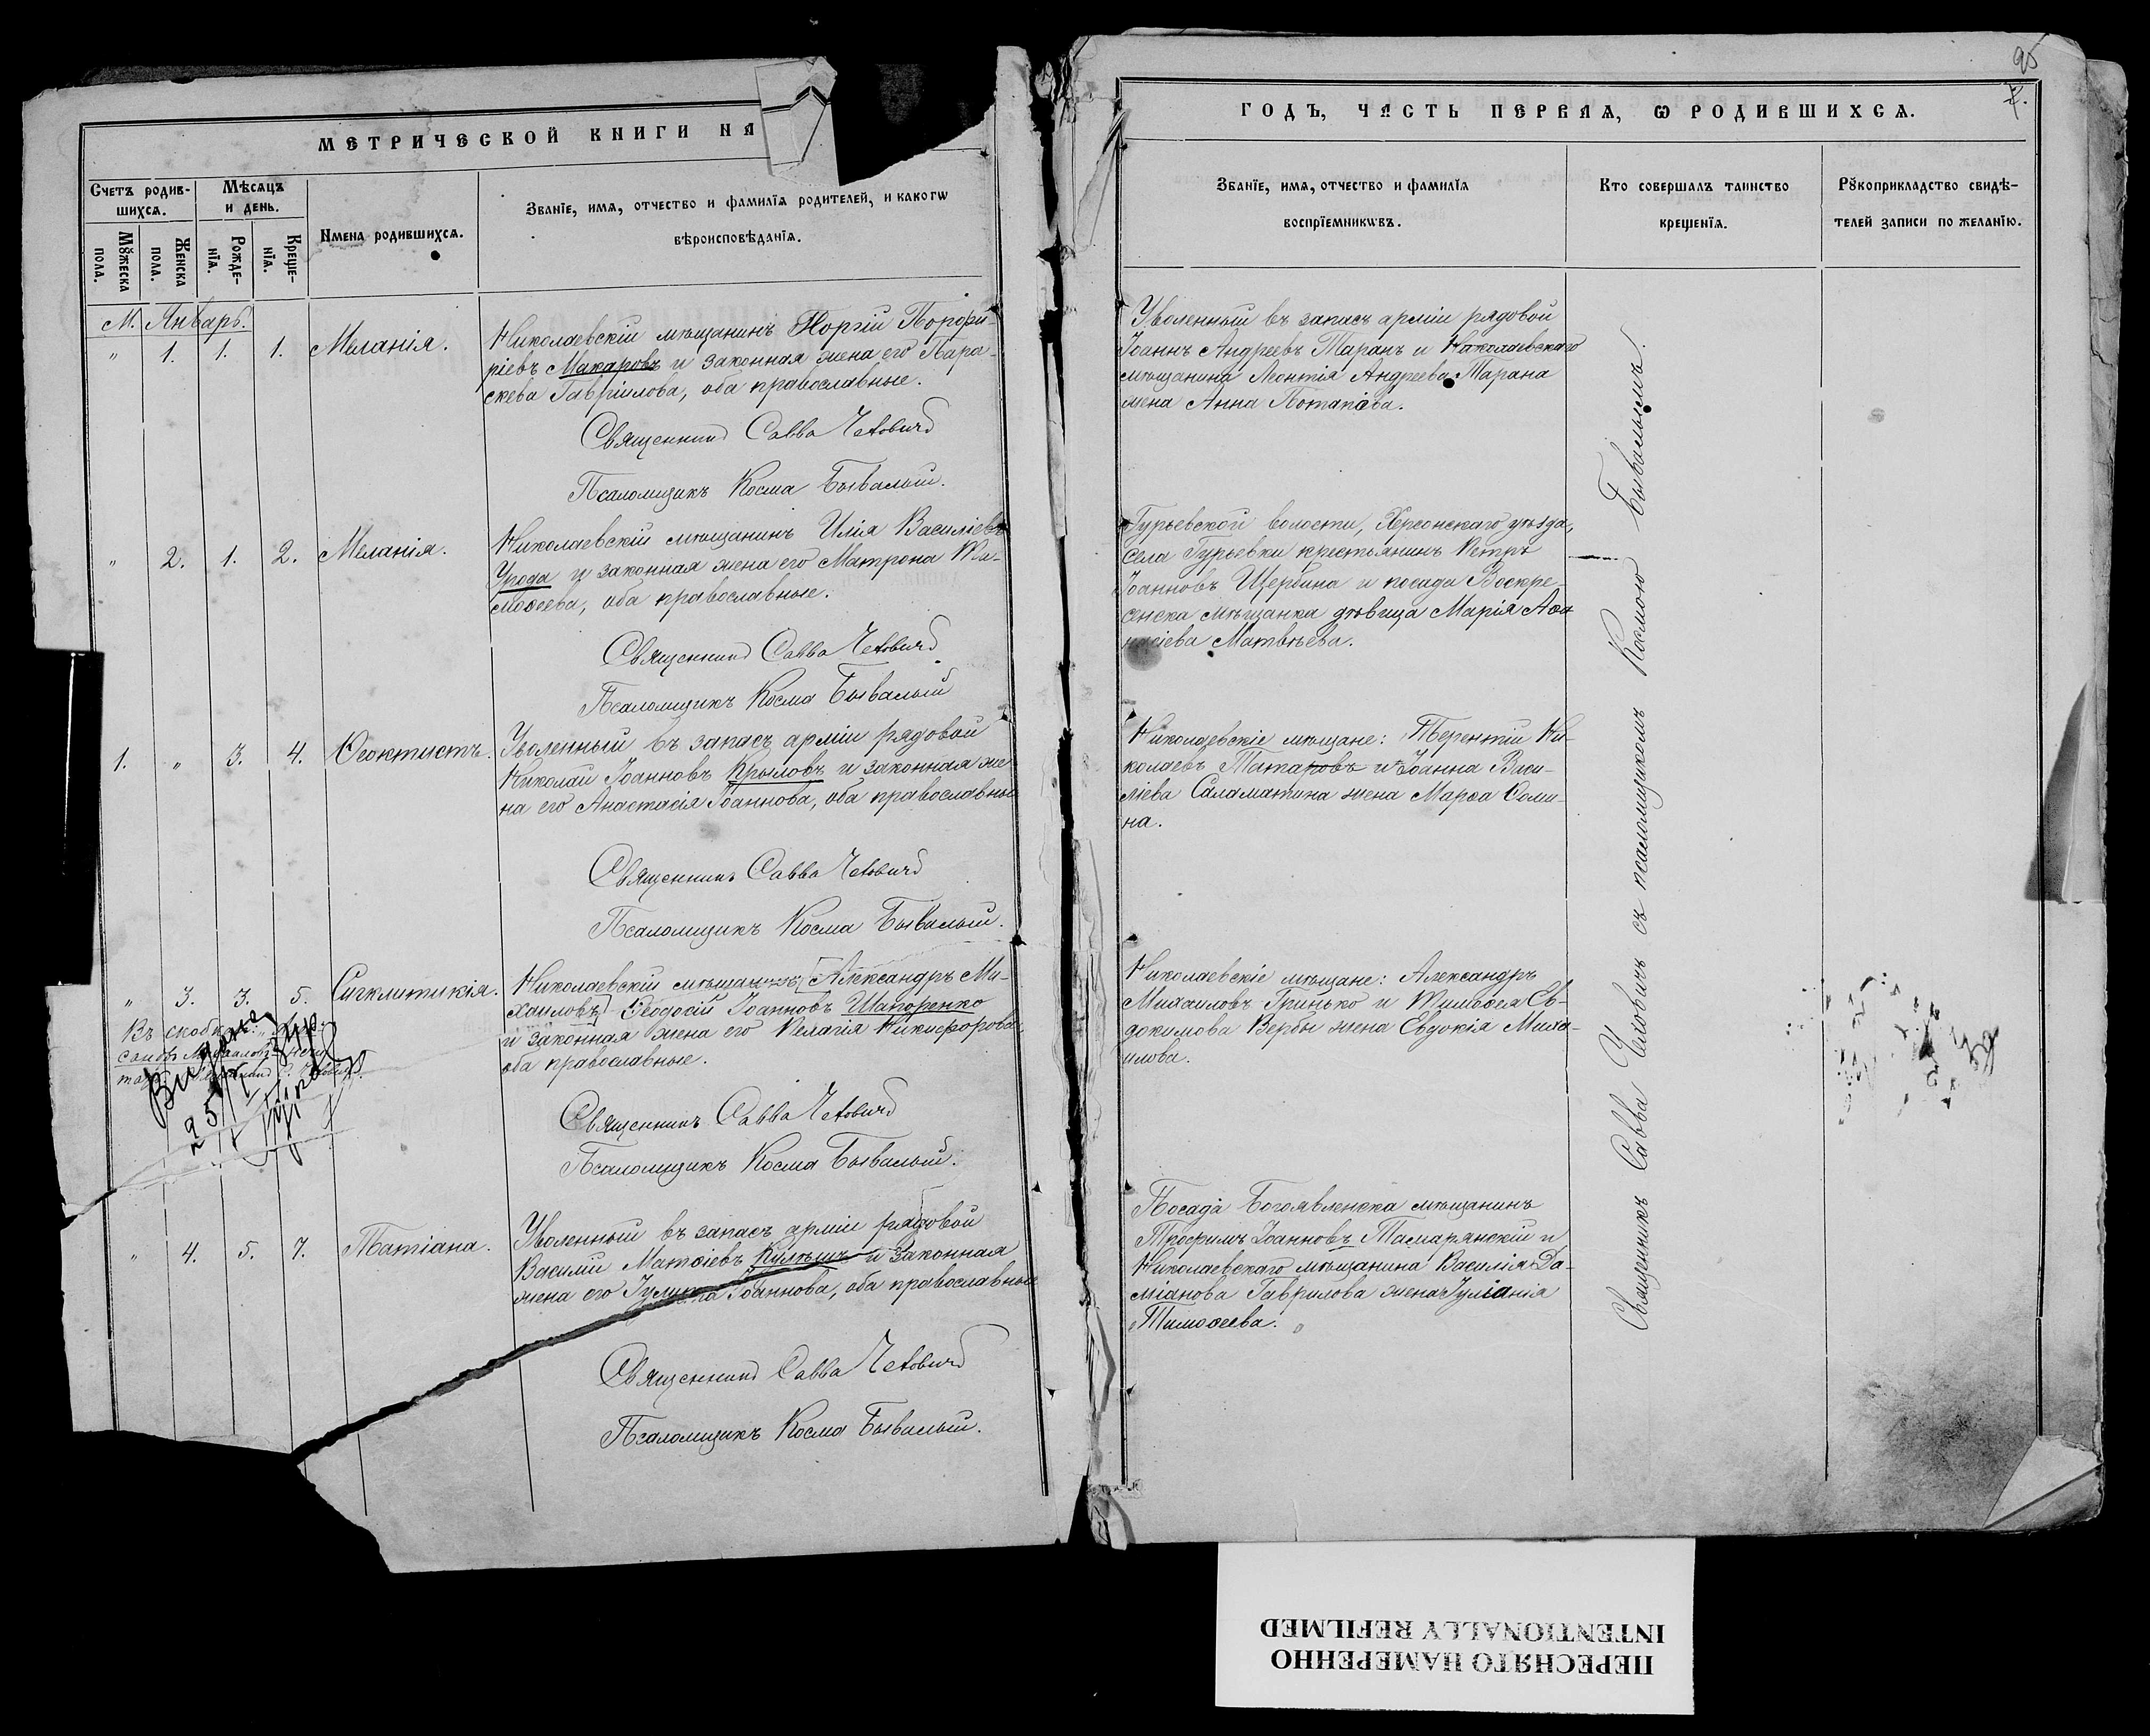 95
7.
МЕТРИЧЕСКОЙ КНИГИ НА
Счетъ родив-
шихся.
Мѣсяцъ
и день.
Имена родившихся.
Званїе, имя, отчество и фамилїя родителей, и какогѡ
вѣроисповѣданїя.
Мꙋжеска
пола.
Женска
пола.
Рожде-
нїя.
Креще-
нїя.
М. Январь.
" 1. 1. 1. Меланія.
Николаевскій мѣщанинъ Георгій Порфи-
ріевъ Макаровъ и законная жена его Пара-
скева Гавріилова, оба православные.
Священникъ Савва Чехович
Псаломщикъ Косма Бывалый.
" 2. 1. 2. Меланія.
Николаевскій мѣщанинъ Илія Василіевъ
Урода и законная жена его Матрона Ти-
моѳеева, оба православные.
Священникъ Савва Чехович
Псаломщикъ Косма Бывалый
1. " 3. 4. Ѳеоктистъ.
Уволенный въ запасъ арміи рядовой
Николай Іоанновъ Крыловъ и законная же-
на его Анастасія Іоаннова, оба православные
Священникъ Савва Чехович
Псаломщикъ Косма Бывалый.
" 3. 3. 5. Сигклитикія.
Николаевскій мѣщанинъ [Александръ Ми-
хаиловъ] Ѳеодосій Іоанновъ Шапоренко
и законная жена его Пелагія Никифорова,
оба православные.
Въ скобкахъ: "Алек-
сандръ Михаиловъ"
Священникъ Савва Чехович
Псаломщикъ Косма Бывалый.
" 4. 5. 7. Татіана.
Уволенный въ запасъ арміи рядовой
Василій Матѳіевъ Кулѣшъ и законная
жена его Іуліанія Іоаннова, оба православные
Священникъ Савва Чехович
Псаломщикъ Косма Бывалый.
ГОДЪ, ЧАСТЬ ПЕРВАЯ, Ѡ РОДИВШИХСЯ.
Званїе, имя, отчество и фамилїя
воспрїемникѡвъ.
Кто совершалъ таинство
крещенїя.
Рꙋкоприкладство свидѣ-
телей записи по желанїю.
Уволенный въ запасъ арміи рядовой
Іоаннъ Андреевъ Таранъ и Николаевскаго
мѣщанина Леонтія Андреева Тарана
жена Анна Потапіева.
Гурьевской волости, Херсонскаго уѣзда,
села Гурьевки крестьянинъ Петръ
Іоанновъ Щербина и посада Воскре-
сенска мѣщанка дѣвица Марія Аѳа-
насіева Матвѣева.
Николаевскіе мѣщане: Терентій Ни-
колаевъ Татаровъ и Іоанна Васи-
ліева Саламатина жена Марѳа Ѳоми-
на.
Николаевскіе мѣщане: Александръ
Михаиловъ Гринько и Тимоѳея Ев-
докимова Вербы жена Евдокія Миха-
илова.
Посада Богоявленска мѣщанинъ
Трофимъ Іоанновъ Тамарянскій и
Николаевскаго мѣщанина Василія Да-
міанова Гаврилова жена Іуліанія
Тимоѳеева.
Священникъ Савва Чеховичъ съ псаломщикомъ Космою Бывалымъ.
ПЕРЕСНЯТО НАМЕРЕННО
INTENTIONALLY REFILMED